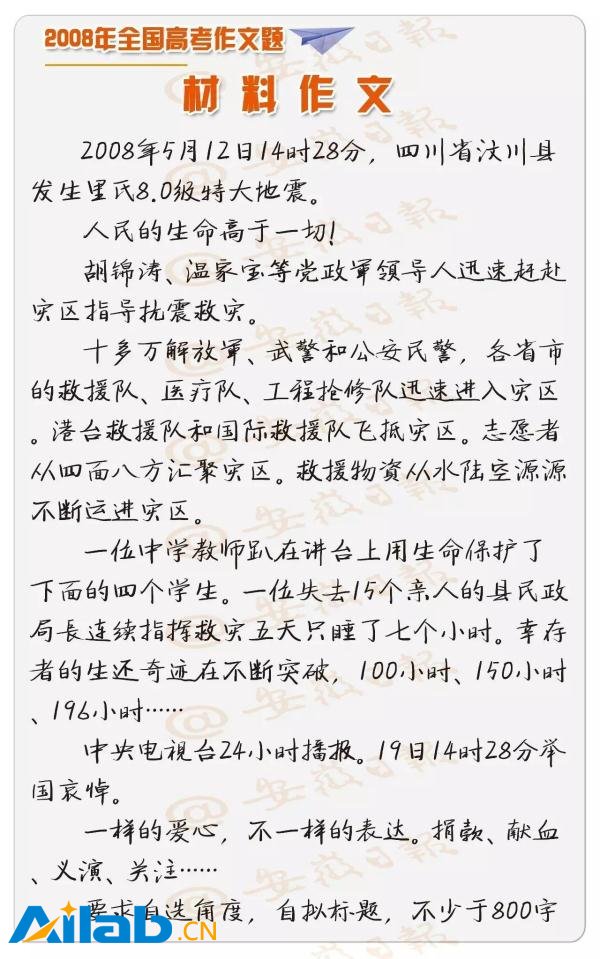 2008年全国高考作文题
材料作文
2008年5月12日14时28分，四川省汶川县
发生里氏8.0级特大地震。
人民的生命高于一切！
胡锦涛、温家宝等党政军领导人迅速赶赴
灾区指导抗震救灾。
十多万解放军、武警和公安民警，各省市
的救援队、医疗队、工程抢修队迅速进入灾区
。港台救援队和国际救援队飞抵灾区。志愿者
从四面八方汇聚灾区。救援物资从水陆空源源
不断运进灾区。
一位中学教师趴在讲台上用生命保护了
下面的四个学生。一位失去15个亲人的县民政
局长连续指挥救灾五天只睡了七个小时。幸存
者的生还奇迹在不断突破，100小时、150小时
、196小时……
中央电视台24小时播报。19日14时28分举
国哀悼。
一样的爱心，不一样的表达。捐款、献血
、义演、关注……
要求自选角度，自拟标题，不少于800字
Ailab.CN
@安徽日报